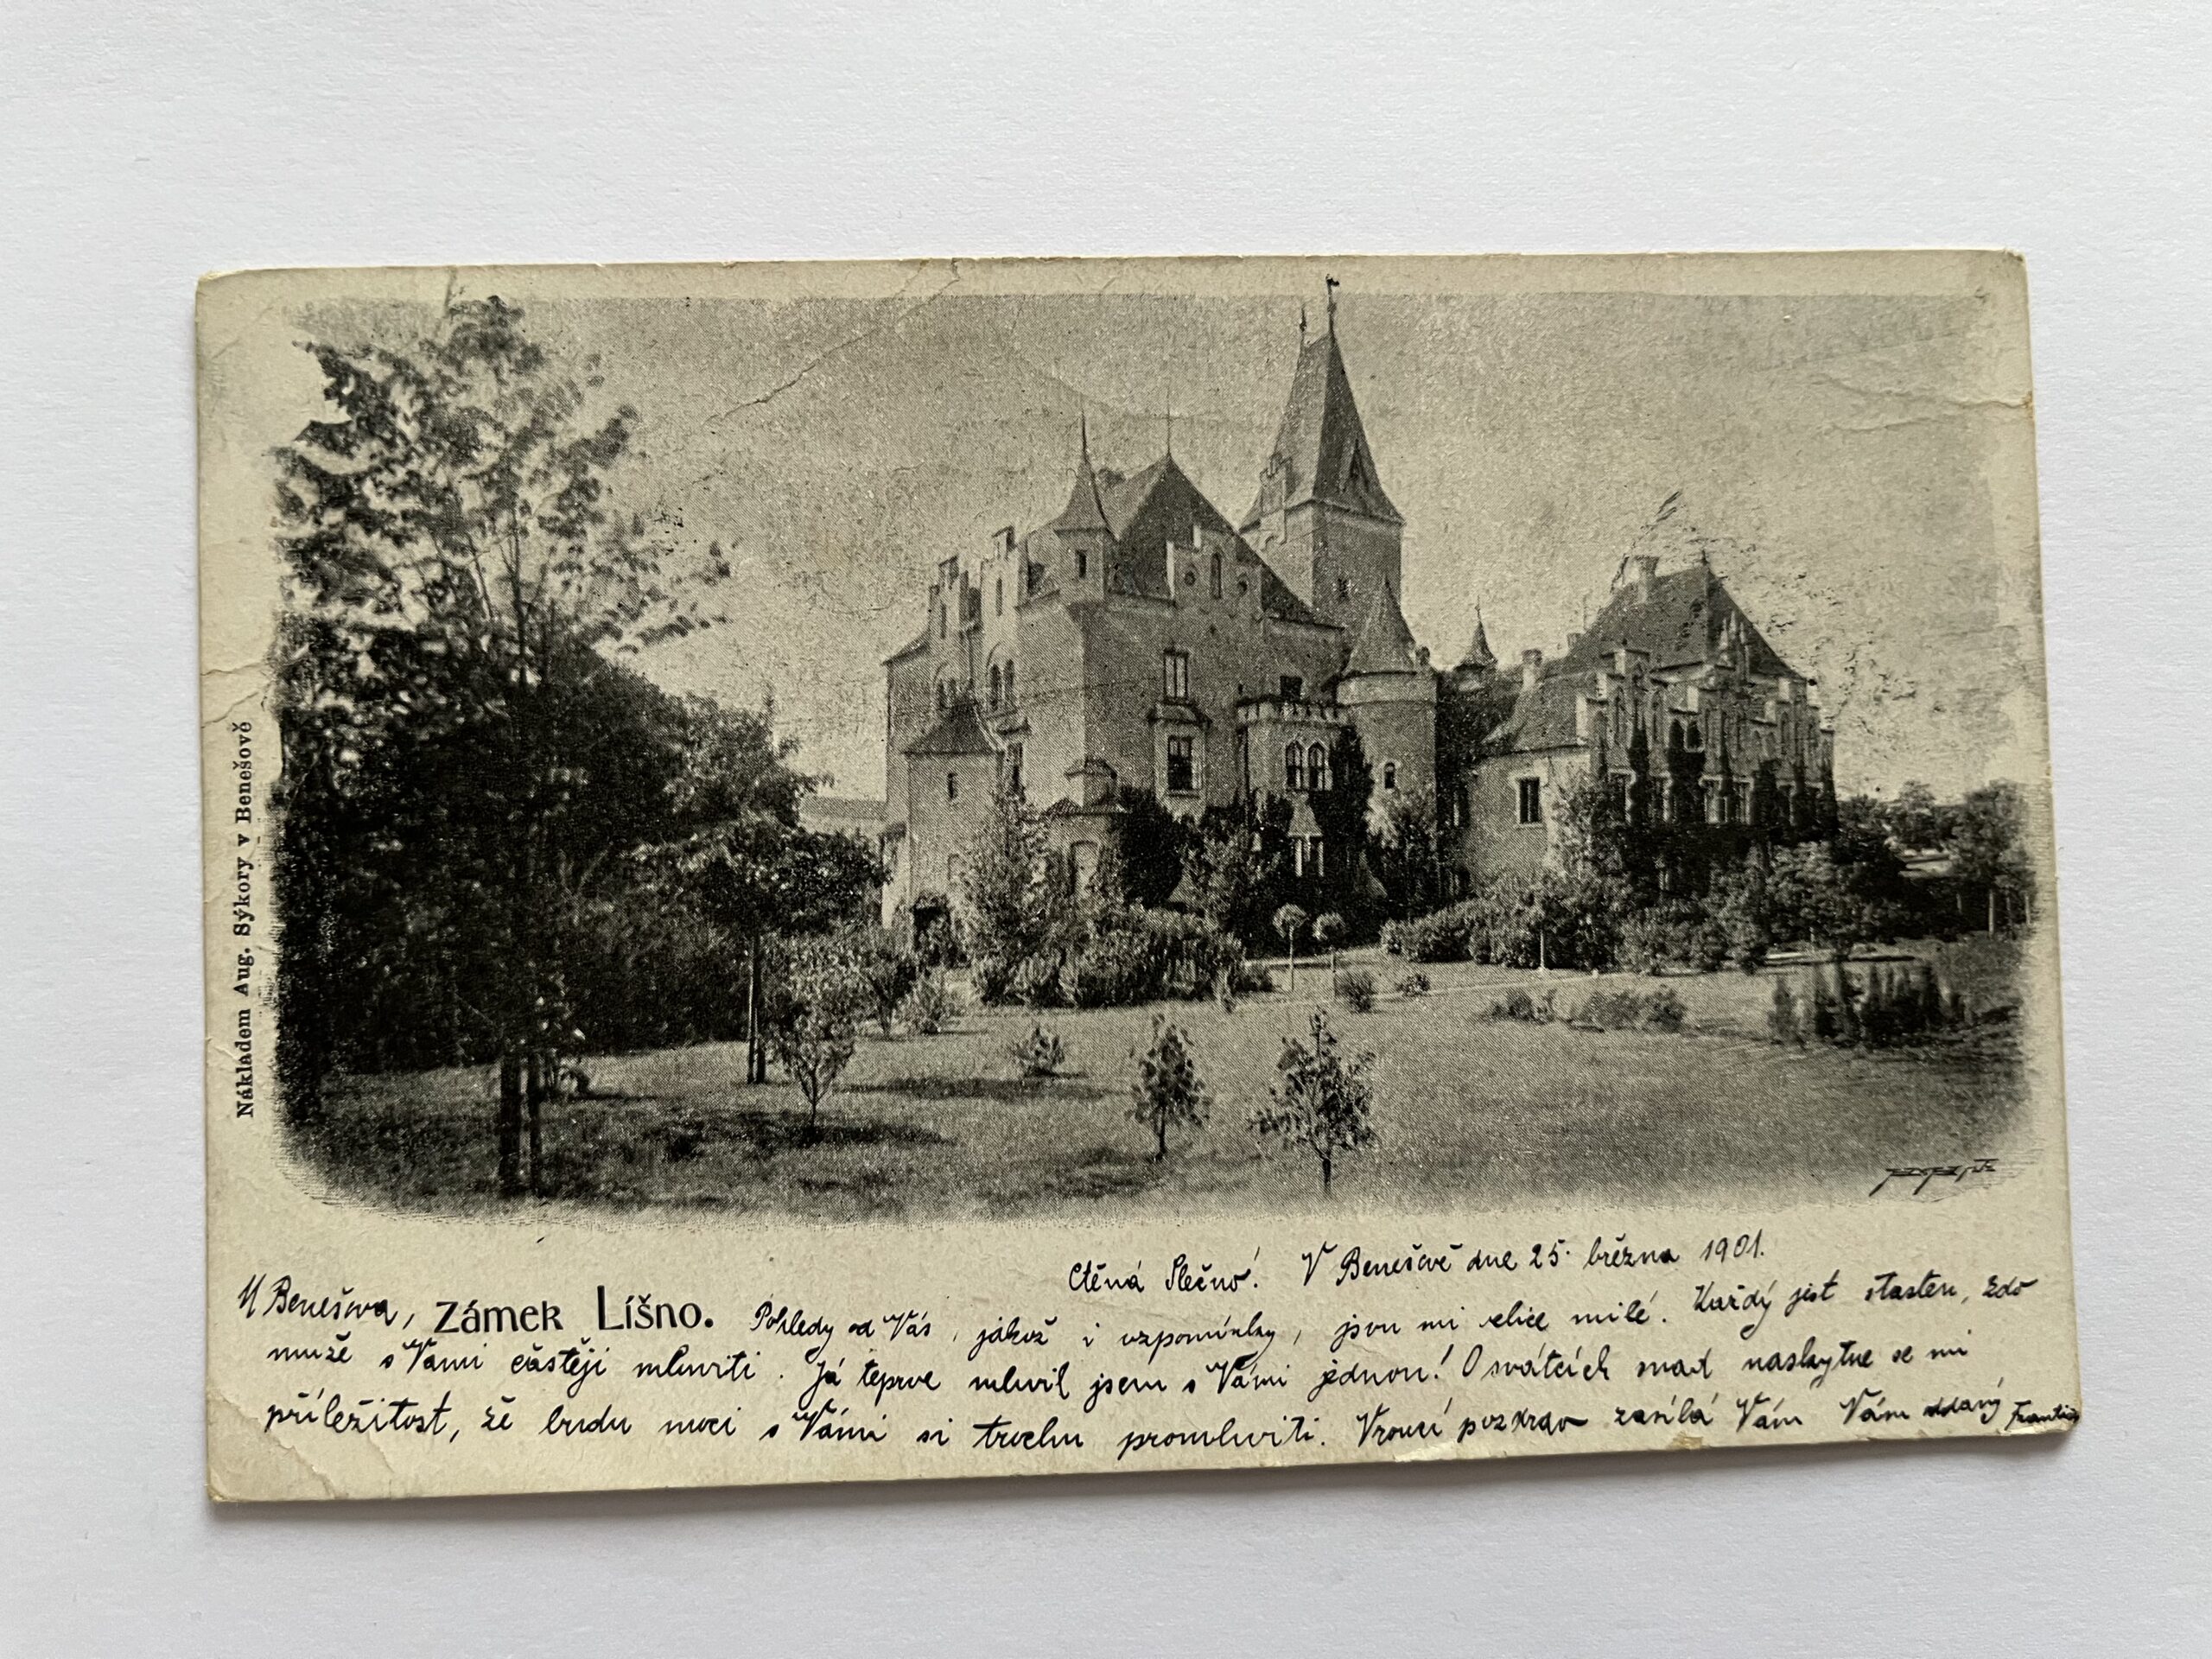 Nákladem Aug. Sýkory v Benešově
Ctěná Slečno! V Benešově dne 25. března 1901.
U Benešova, Zámek Líšno. Pohledy od Vás, jakož i vzpomínky, jsou mi velice milé. Každý jest šťasten, kdo
může s Vámi částěji mluviti. Já teprve mluvil jsem s Vámi jednou! O svátcích snad naskytne se mi
příležitost, že budu moci s Vámi si trochu promluviti. Vroucí pozdrav zasílá Vám Vám oddaný